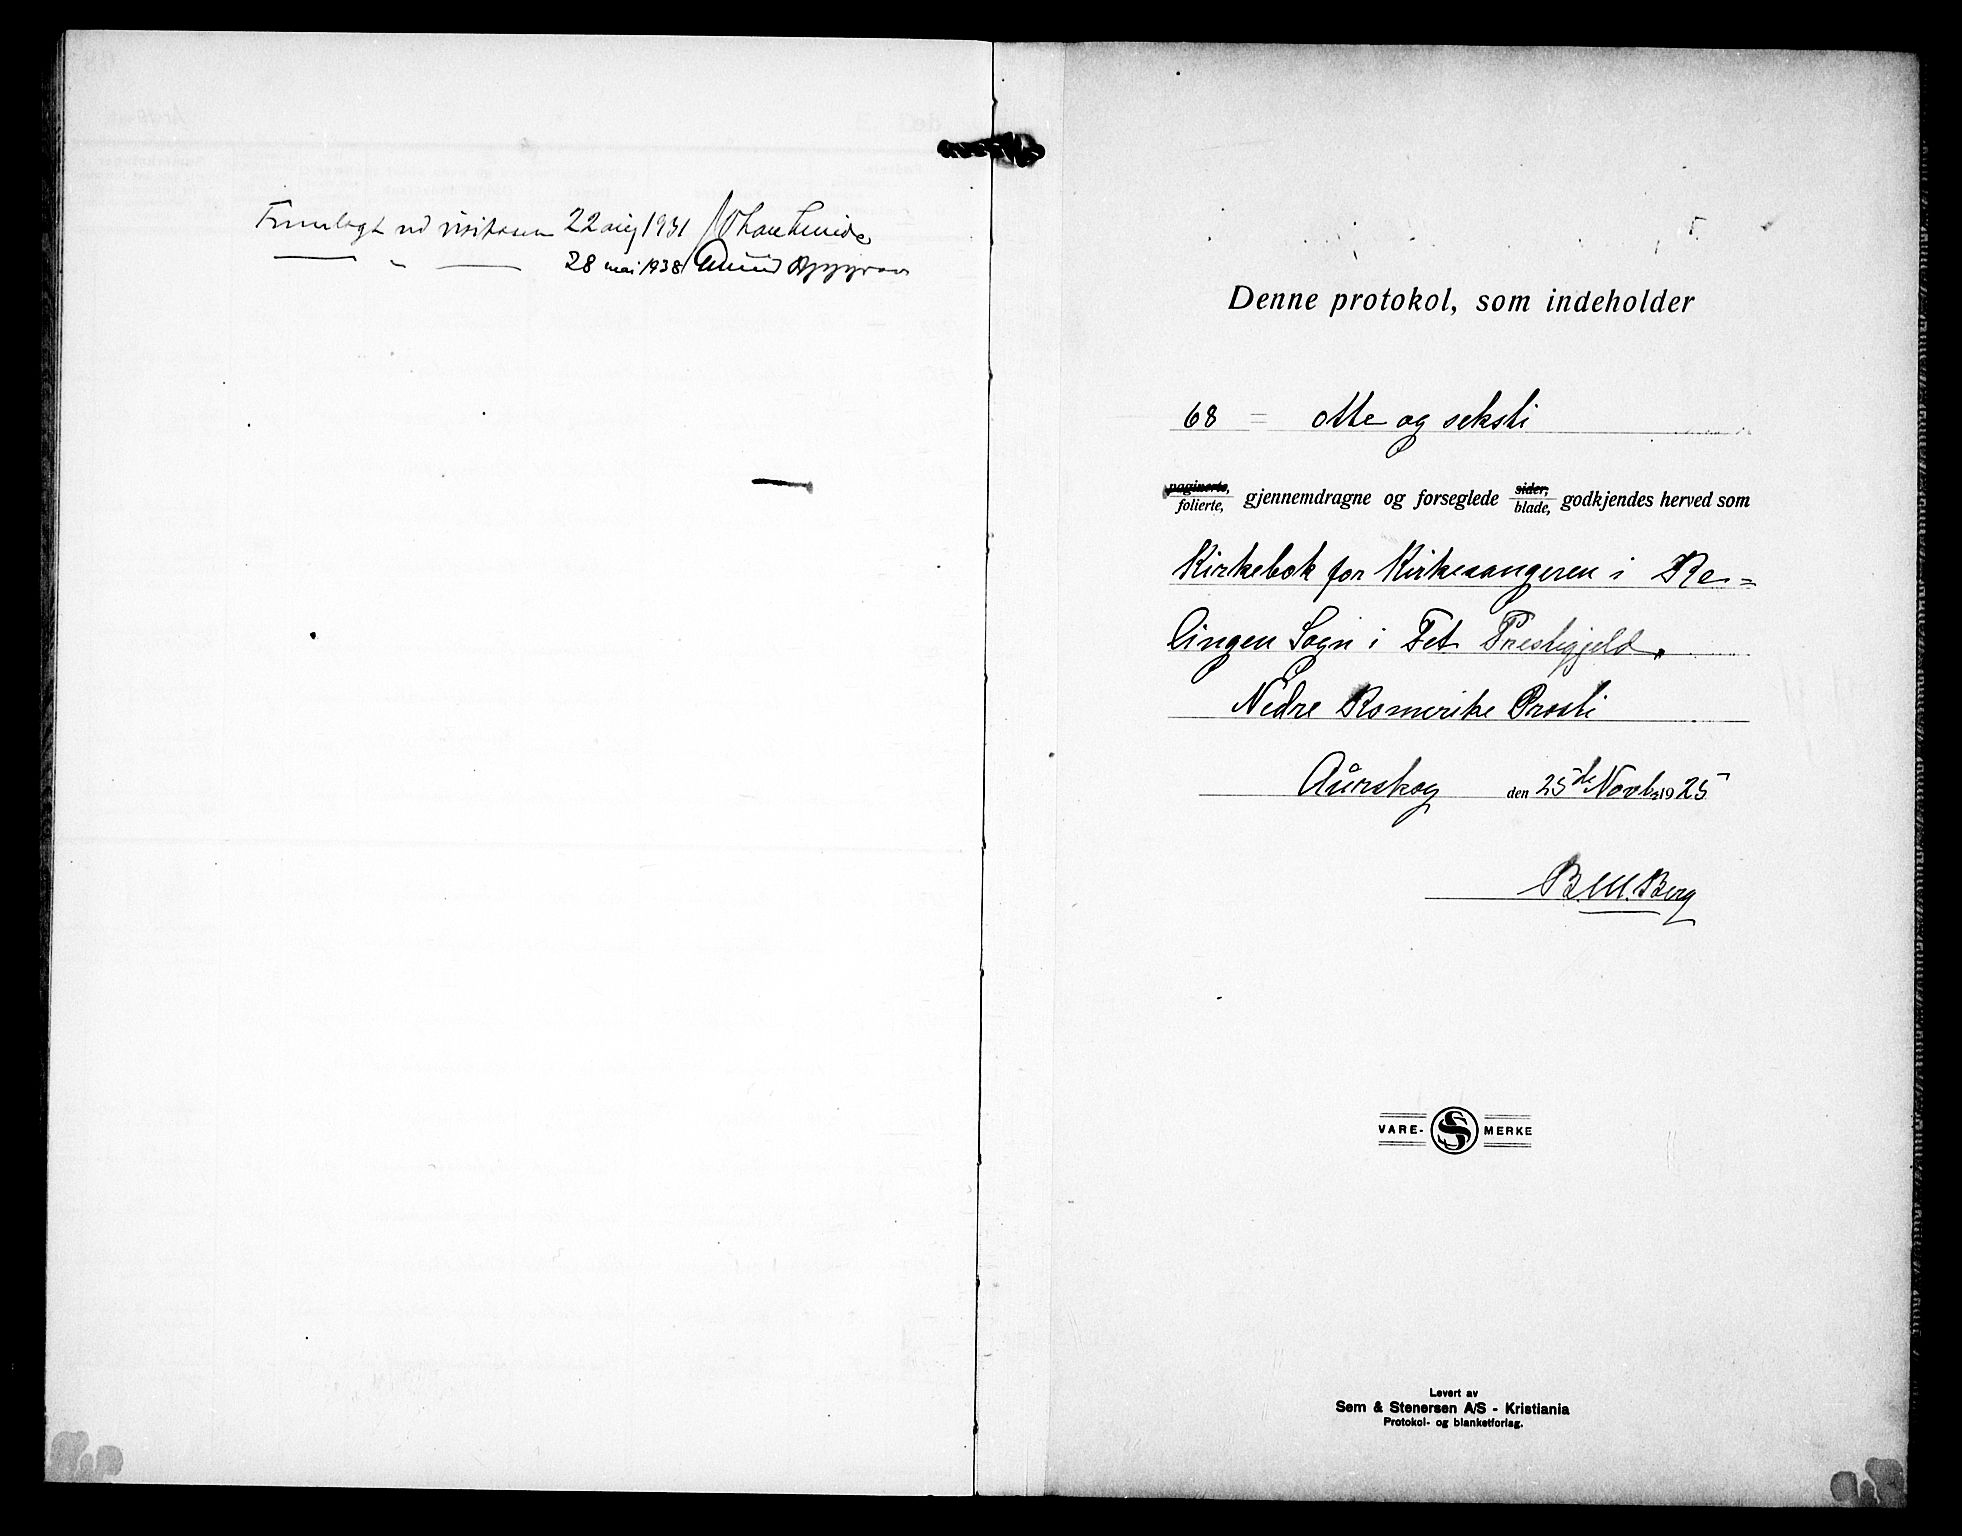 Fremlagt ved visitasen 22 aug 1931 / Johan Lunde
28 mai 1938 /
Denne protokol, som indeholder
68 = otte og seksti
paginerte, folierte, gjennemdragne og forseglede sider, blade, godkjendes herved som
Kirkebok for Kirkesangeren i Re=
lingen Sogn i Fet Prestegjeld.
Nedre Romerike Prosti
Aurskog den 25de Novb. 1925
B. M. Berg
VARE- S MERKE
Levert av
Sem & Stenersen A/S - Kristiania
Protokol- og blanketforlag.